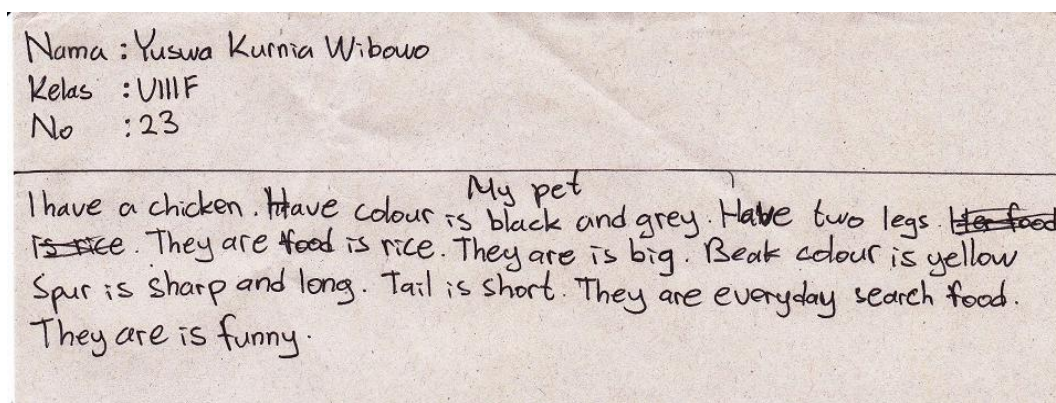 Nama : Yuswa Kurnia Wibowo
Kelas : VIIIF
No : 23
My pet
I have a chicken. Have colour is black and grey. Have two legs. Her food
is rice. They are food is rice. They are is big. Beak colour is yellow
Spur is sharp and long. Tail is short. They are everyday search food.
They are is funny.